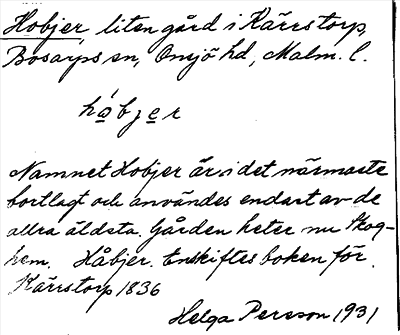 Hobjer, liten gård i Kärrstorp,
Bosarps sn, Onsjö hd, Malm. l.
hǻbjer
Namnet Hobjer är i det närmaste
bortlagt och användes endast av de
allra äldsta. Gården heter nu Skog-
hem. Håbjer. Enskiftesboken för
Kärrstorp 1836
Helga Persson 1931